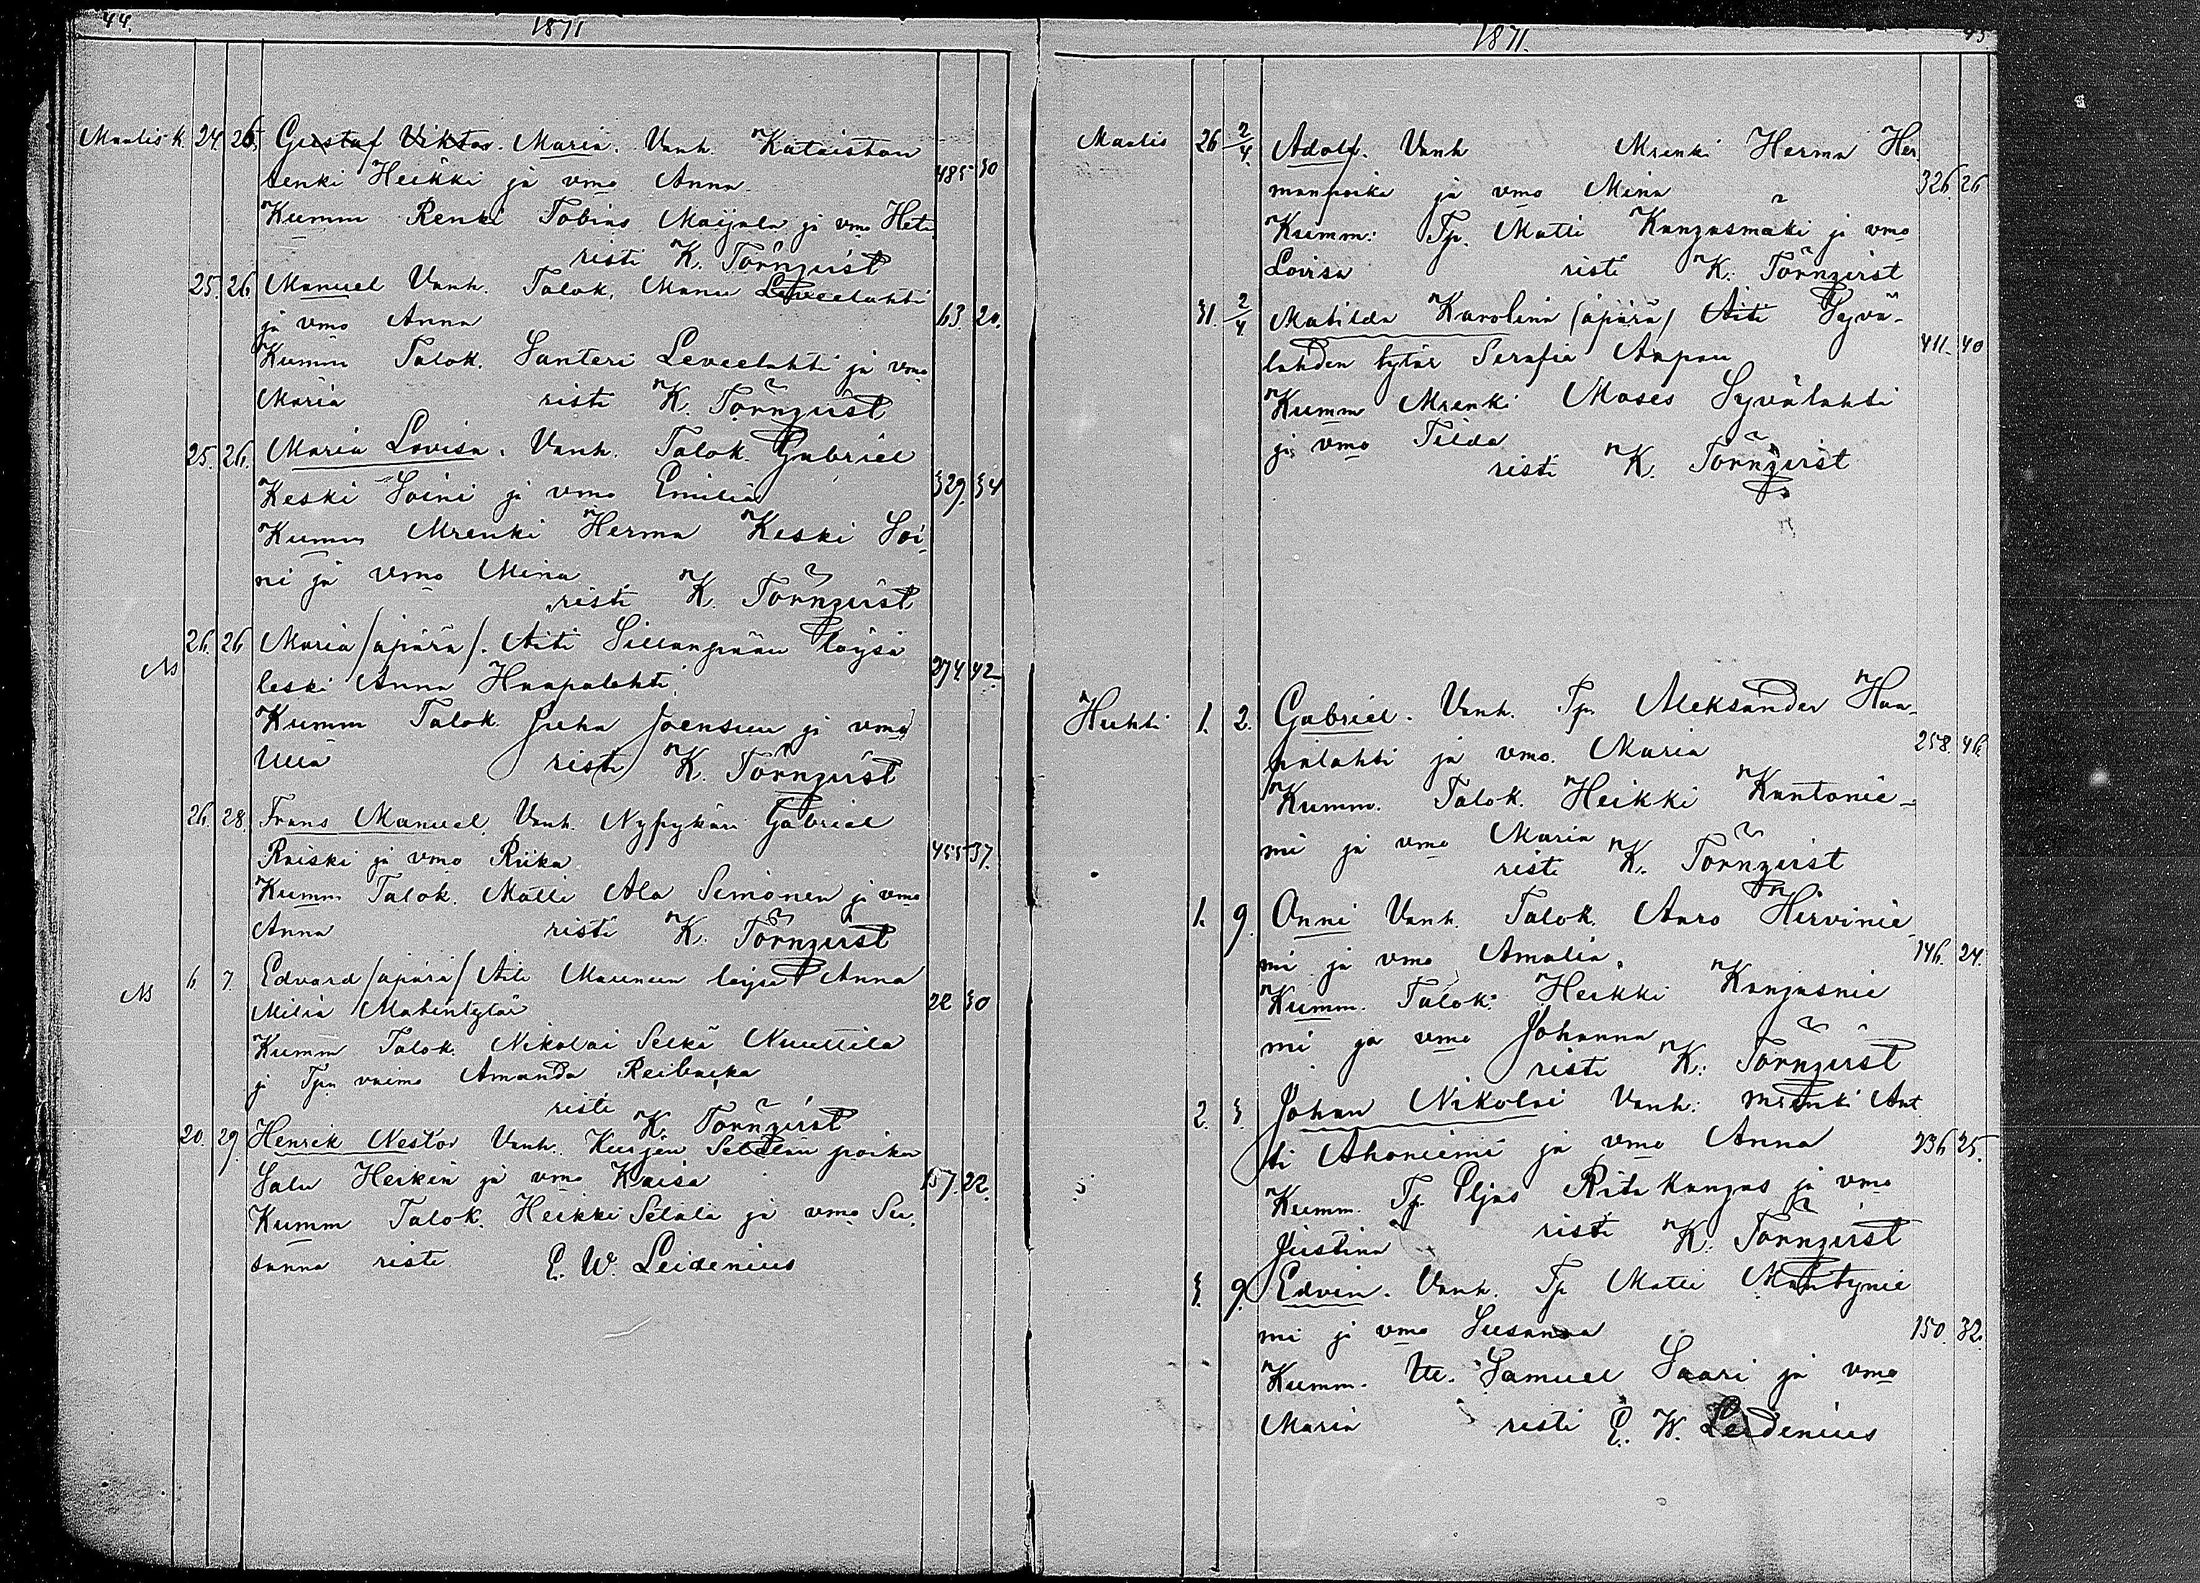 44.
1871
Maalis k. 24 26. Gustaf Viktor. Maria. Vanh. Kataiston
renki Heikki ja vmo Anna. 485 30
Kumm Renki Tobias Maijala ja vmo Heta
risti K. Törnqvist
25. 26 Manuel Vanh. Talok. Manu Leveelahti
ja vmo Anna 63. 20.
Kumm Talok. Santeri Leveelahti ja vmo
Maria risti K. Törnqvist
25. 26. Maria Lovisa. Vanh. Talok. Gabriel
Keski Soini ja vmo Emilia 329. 34
Kumm Mrenki Herma Keski Soi-
ni ja vmo Mina
risti K. Törnqvist
26. 26 Maria /äpärä/. Äiti Sillanpään löysä
leski Anna Haapalahti. 274 42
Kumm Talok Juha Joensuu ja vmo
Ulla risti K. Törnqvist
26. 28. Frans Manuel. Vanh. Nypykän Gabriel
Raiski ja vmo Riika 455 37.
Kumm Talok. Matti Ala Simonen ja vmo
Anna risti K. Törnqvist
6 7 Edvard /äpärä/ Äiti löysä Anna
Milia Matintytär 22 30
Kumm Talok. Nikolai Selkä Nuuttila
ja Tpn vaimo Amanda
risti K. Törnqvist
20. 29. Henrik Nestor Vanh. poika
Salu Heikin ja vmo Kaisa 157. 22.
Kumm Talok. Heikki Setälä ja vmo Su-
sanna risti E. W. Leidenius
1871.
45
Maalis 26 2/4. Adolf. Vanh Mrenki Herma Her-
manpoika ja vmo Mina 326 26
Kumm: Tp. Matti Kangasmäki ja vmo
Lovisa risti K. Törnqvist
31. 2/4 Matilda Karolina /äpärä/ Äiti Syvä-
lahden tytär Serafia Aapon 411 40
Kumm Mrenki Moses Syvälahti
ja vmo Tilda
risti K. Törnqvist
Huhti 1. 2. Gabriel. Vanh. Tp. Aleksander Haa-
palahti ja vmo. Maria 258. 46.
Kumm. Talok. Heikki Kantonie-
mi ja vmo Maria
risti K. Törnqvist
1. 9. Onni Vanh. Talok. Aaro Hirvinie-
mi ja vmo Amalia. 146. 24.
Kumm. Talok. Heikki Kangasnie
mi ja vmo Johanna
risti K. Törnqvist
2. 3. Johan Nikolai Vanh: mrenki Ant-
ti Ahoniemi ja vmo Anna 236 25.
Kumm. Tp. Eljas Ritakangas ja vmo
Justina risti K. Törnqvist
3. 9. Edvin. Vanh. Tp Matti Mäntynie
mi ja vmo Susanna 150. 32.
Kumm. Samuel Saari ja vmo
Maria risti E. W. Leidenius